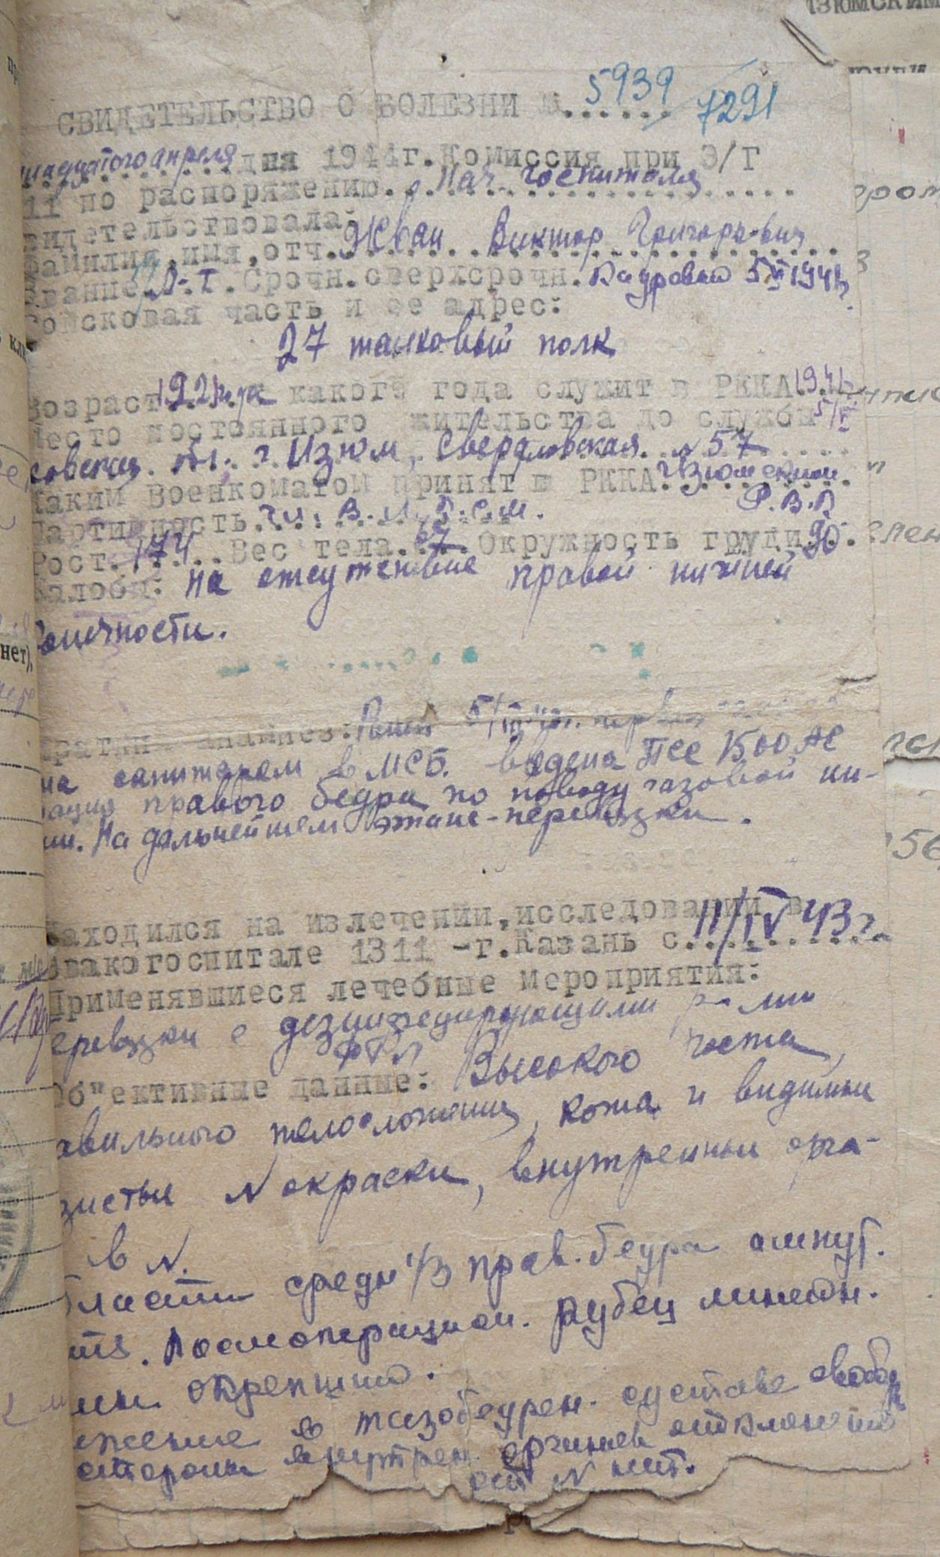 ИЗЮМСКИМ
СВИДЕТЕЛЬСТВО О БОЛЕЗНИ №...... 5939 / 7291
адцатого апреля дня 1944г. Комиссия при Э/Г
11 по распоряжению. Нач. госпиталя
видетельствовала
Фамилия, имя, отч. Жван Виктор Григорьевич
Звание Л-т. Срочн. сверхсрочн. Кадровый 1941г
Войсковая часть и ее адрес:
27 танковый полк
Возраст 1921г. с какого года служит в РККА 1941
Место постоянного жительства до службы
г. Изюм, Свердловская № 57
Каким Военкоматом принят в РККА. Изюмским
Р.В.К
Партийность. чл. В.Л.К.С.М.
Рост. 174 .. Вес тела. 67. Окружность груди 90.
Жалобы: На отсутствие правой нижней
конечности.
Краткий анамнез: Ранен 5/III 43г.
на санитаром в МСБ. введена ПСС 1500 АЕ
тация правого бедра по поводу газовой ин-
ии. На дальнейшем этапе - перевязки.
Находился на излечении, исследовании в
Эвакогоспитале 1311 - г. Казань с. 11/IV 43 г.
Применявшиеся лечебные мероприятия:
еревязки с дезинфецирующими р-ми
Об"ективные данные: Высокого роста,
авильного телосложения, кожа и видимые
зистые N окраски, внутренные орга-
в N.
бласти средн 1/3 прав. бедра ампут.
Послеоперацион. рубец линейн.
окрепший.
ижение в тазобедрен. суставе свобод
стороны внутрен. органов отклонений
от N нет.